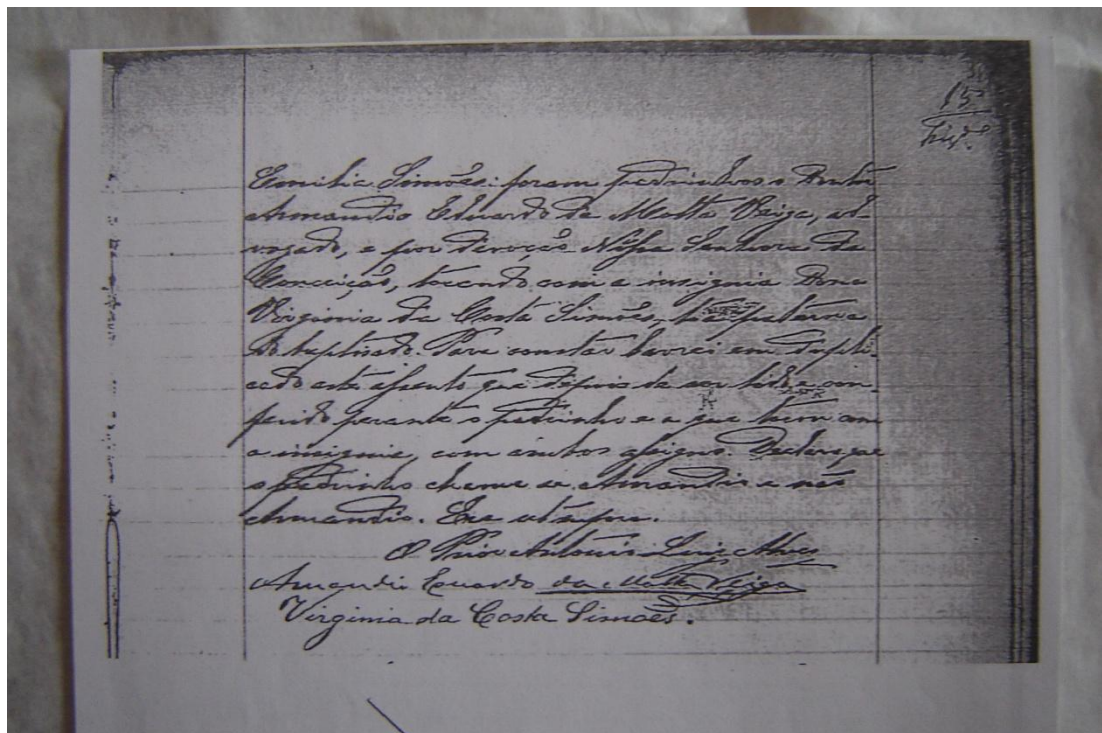 15
Emilia Simões: foram padrinhos o Doutor
Armandio Eduardo da Motta Veiga, ad-
vogado, e por devoção Nossa Senhora da
Conceição, tocando com a insignia Dona
Virginia da Costa Simões, tia paterna
do baptisado. Para constar lavrei em dupli-
cado este assento que depois de ser lido e con-
ferido perante o padrinho e a que tocou com
a insignia, com ambos assigno. Declaro que
o padrinho chama-se Amandio e não
Armandio. Era ut supra.
O Prior Antonio Luiz Alves
Amandio Eduardo da Motta Veiga
Virginia da Costa Simões.